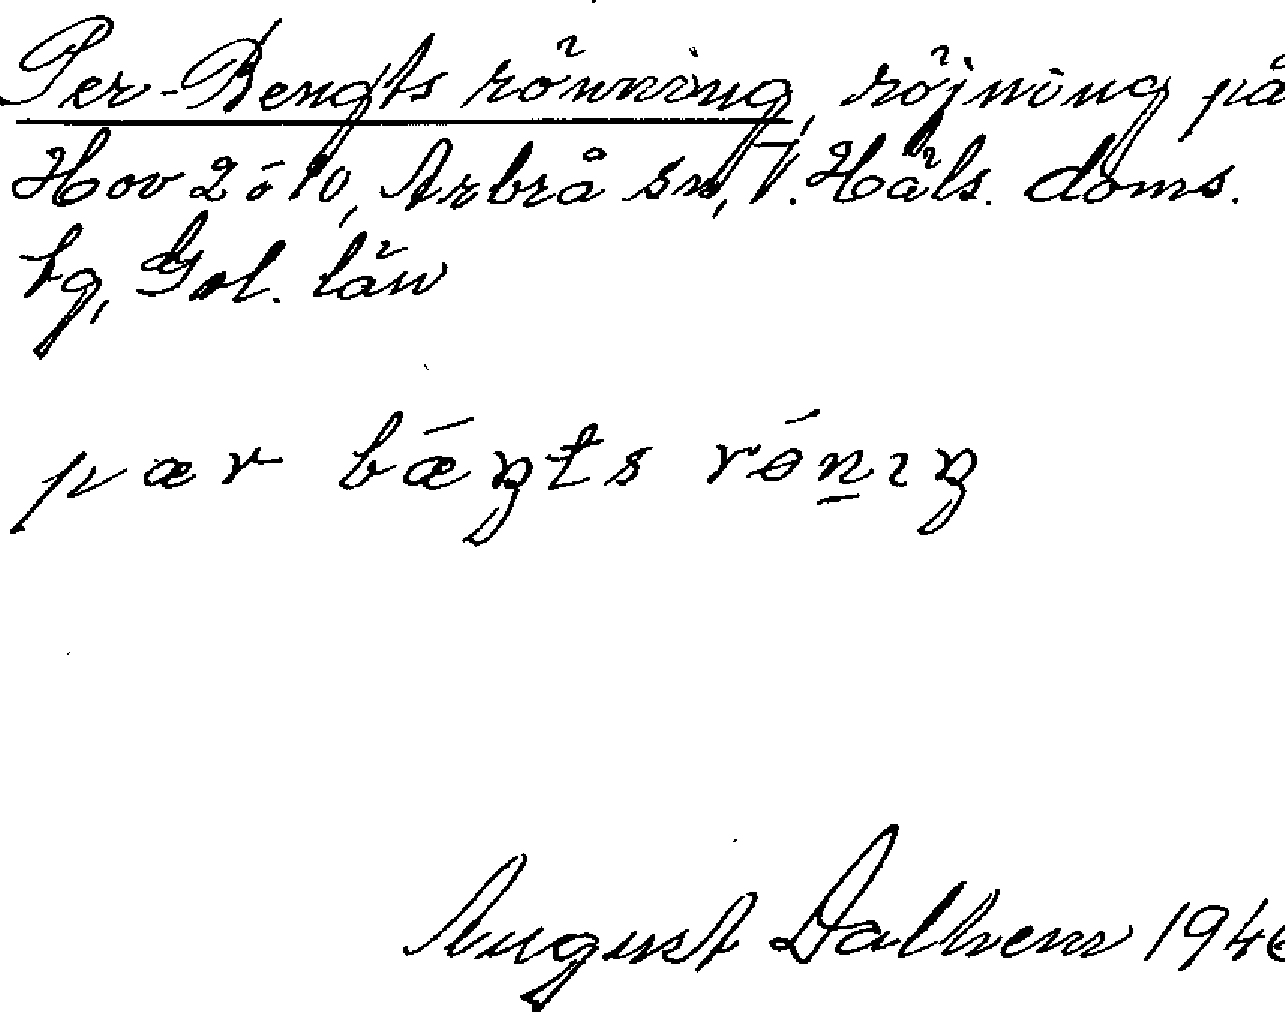 Per-Bengts rönning, röjning på
Hov 2 o 10, Arbrå sn, V. Häls. doms.
hg, Gvl. län
pær bǽŋts rǿnıŋ
August Dalhem 194